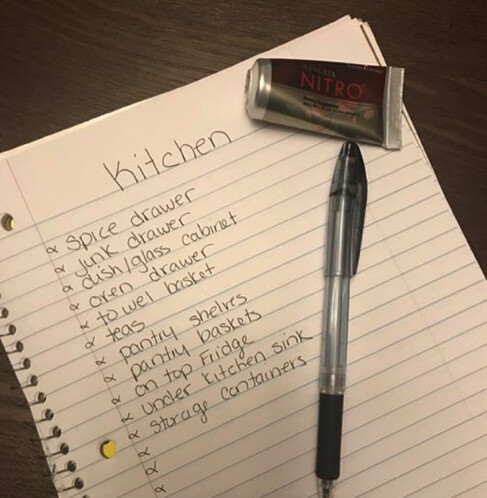 NITRO
Kitchen
∝ spice drawer
∝ junk drawer
∝ dish/glass cabinet
∝ oven drawer
∝ towel basket
∝ teas
∝ pantry shelves
∝ pantry baskets
∝ on top Fridge
∝ under kitchen sink
∝ storage containers
∝
∝
∝